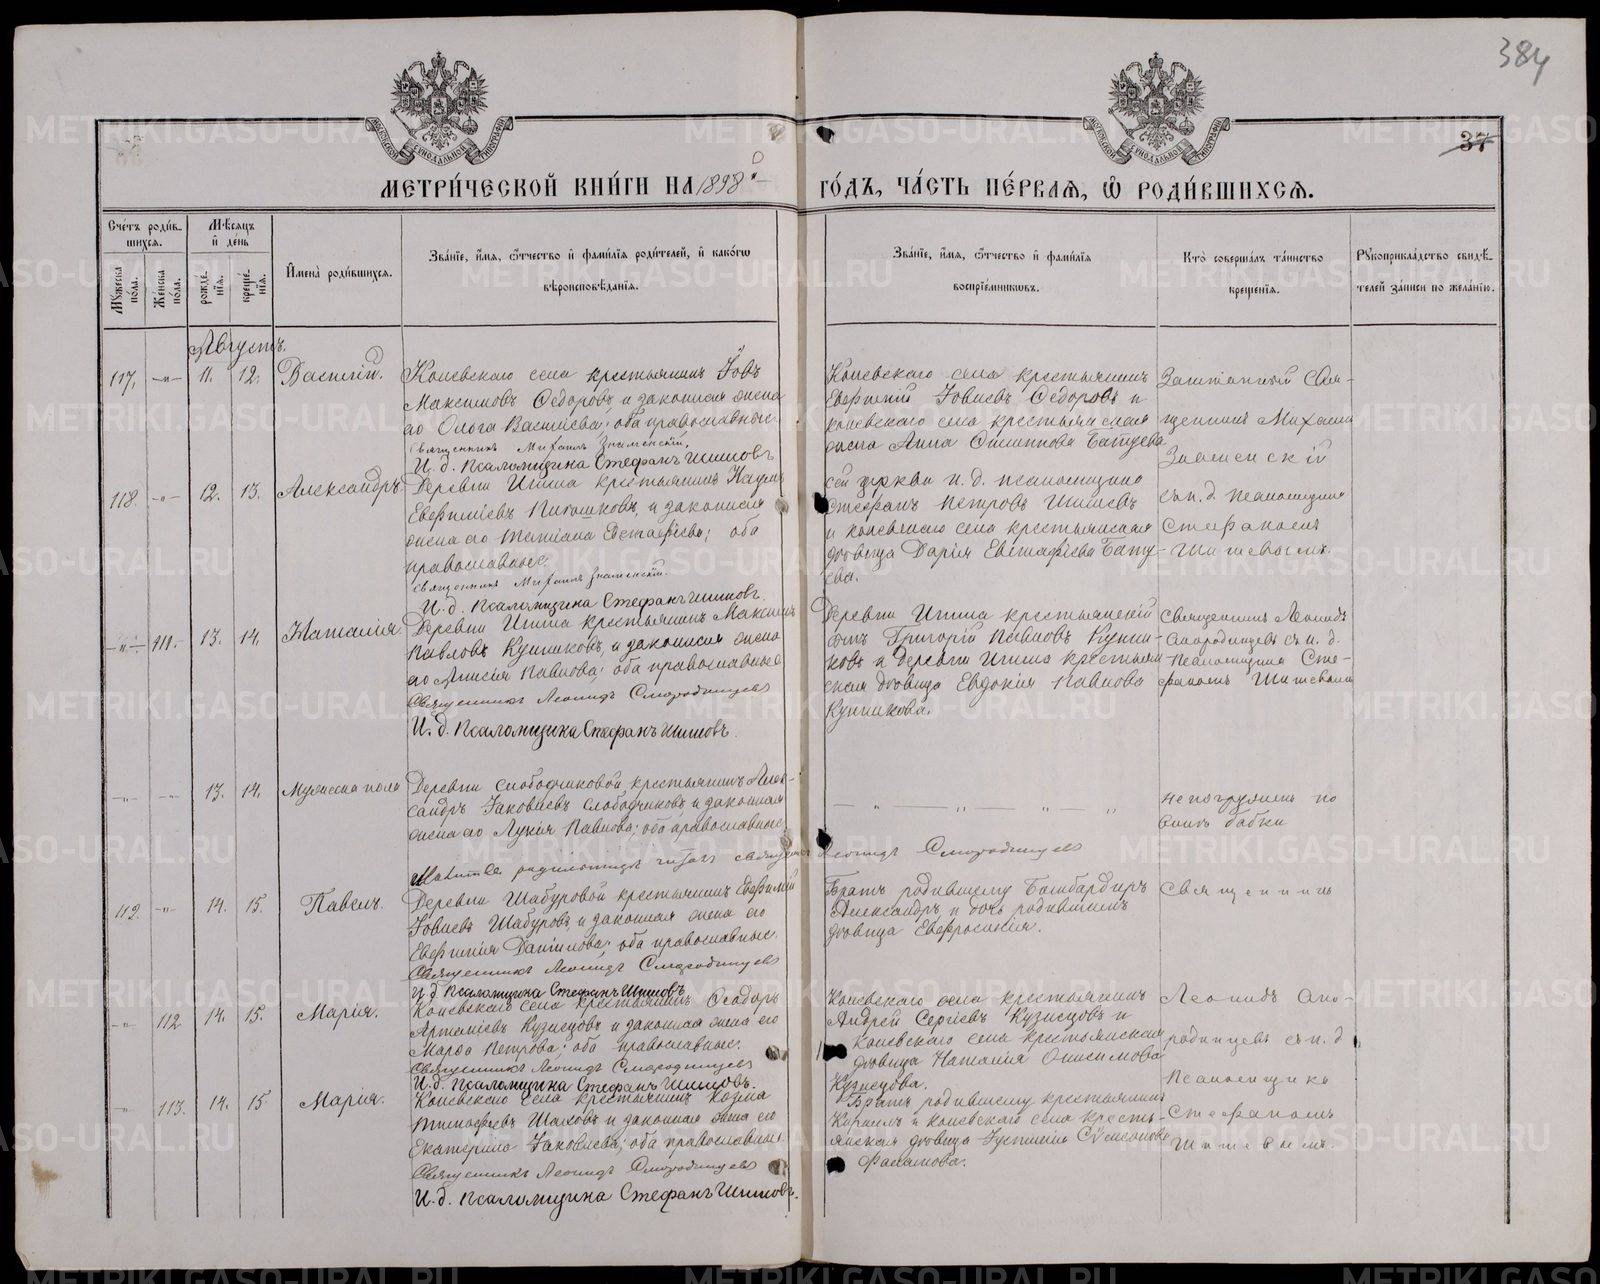 384
37
МЕТРИ́ЧЕСКОЙ КНИ́ГИ НА 1898й
ГО́ДЪ, ЧА́СТЬ ПЕ́РВАЯ, Ѡ҆ РОДИ́ВШИХСЯ.
Сче́тъ роди́в-
шихся.
Мѣ́сяцъ
и҆ де́нь
Мꙋ́жеска по́ла.
Же́нска по́ла.
рожде́-
нїя.
креще́-
нїя.
И҆мена̀ роди́вшихся.
Зва́нїе, и҆́мя, ѻ҆́тчество и҆ фами́лїя роди́телей, и҆ како́гѡ
вѣроисповѣ́данїя.
Зва́нїе, и҆́мя, ѻ҆́тчество и҆ фами́лїя
воспрїе́мникѡвъ.
Кто̀ соверша́лъ та́инство
креще́нїя.
Рꙋкоприкла́дство свидѣ́-
телей за́писи по жела́нїю.
Августъ.
117.
11.
12.
Василій.
Коневскаго села крестьянинъ Іовъ
Максимовъ Ѳедоровъ и законная жена
его Олога Васильева; оба православные.
Священникъ Михаилъ Знаменскій.
И. д. Псаломщика Стефанъ Шишовъ
Коневскаго села крестьянинъ
Евфимій Іовлевъ Ѳедоровъ и
коневскаго села крестьянская
жена Анна Батуева
Заштатный Свя-
щенникъ Михаилъ
Знаменскій
съ и. д. псаломщика
Стефаномъ
Шишевымъ.
118.
12.
13.
Александръ.
Деревни Игиша крестьянинъ Наумъ
Евфиміевъ и законная
жена его Татіана Евстафіева; оба
православные.
Священникъ Михаилъ Знаменскій.
И. д. Псаломщика Стефанъ Шишовъ.
сей церкви и. д. псаломщика
Стефанъ Петровъ Шишевъ
и коневского села крестьянская
дѣвица Дарія Евстафіева Бату-
ева.
111.
13.
14.
Наталія.
Деревни Игиша крестьянинъ Максимъ
Павловъ Кунниковъ, и законная жена
его Анисія Павлова; оба православные
Священникъ Леонидъ Смородинцевъ
И. д. Псаломщика Стефанъ Шишовъ.
Деревни Игиша крестьянскій
сынъ Григорій Павловъ Кунни-
ковъ и деревни Игиша крестьян
ская дѣвица Евдокія Павлова
Кунникова.
Священникъ Леонидъ
Смородинцевъ съ и. д.
псаломщика Сте-
фаномъ Шишевымъ
13.
14.
Мужеска пола
Деревни Слободчиковой крестьянинъ Алек-
сандръ Іаковлевъ Слободчиковъ и законная
жена его Лукія Павлова; оба православные
Молитвы родильницѣ читалъ священникъ Леонидъ Смородинцевъ
не погруженъ по
винѣ бабки
119.
14.
15.
Павелъ.
Деревни Шабуровой крестьянинъ Евфимій
Іовлевъ Шабуровъ, и законная жена его
Евфимія Даніилова; оба православные.
Священникъ Леонидъ Смородинцевъ
И. д. Псаломщика Стефанъ Шишовъ
Братъ родившему Бомбардиръ
Александръ и дочь родившимъ
дѣвица Евфросинія.
Священникъ
112
14.
15.
Марія.
Коневскаго села крестьянинъ Ѳеодоръ
Артеміевъ Кузнецовъ и законная жена его
Марѳа Петрова; оба православные.
Священникъ Леонидъ Смородинцевъ
И. д. Псаломщика Стефанъ Шишовъ.
Коневскаго села крестьянинъ
Андрей Сергіевъ Кузнецовъ и
Коневскаго села крестьянская
дѣвица Наталія Онисимова
Кузнецова.
Леонидъ Смо-
родинцевъ съ и. д
псаломщика
113.
14.
15.
Марія.
Коневскаго села крестьянинъ Козма
Тимоѳеевъ Шаховъ и законная жена его
Екатерина Іаковлева; оба православные
Священникъ Леонидъ Смородинцевъ
И. д. Псаломщика Стефанъ Шишовъ.
Братъ родившему крестьянинъ
Кириллъ и Коневскаго села кресть-
янская дѣвица Іустинія Сѵмеонова
Фалалова.
Стефаномъ
Шишевымъ.
METRIKI.GASO-URAL.RU